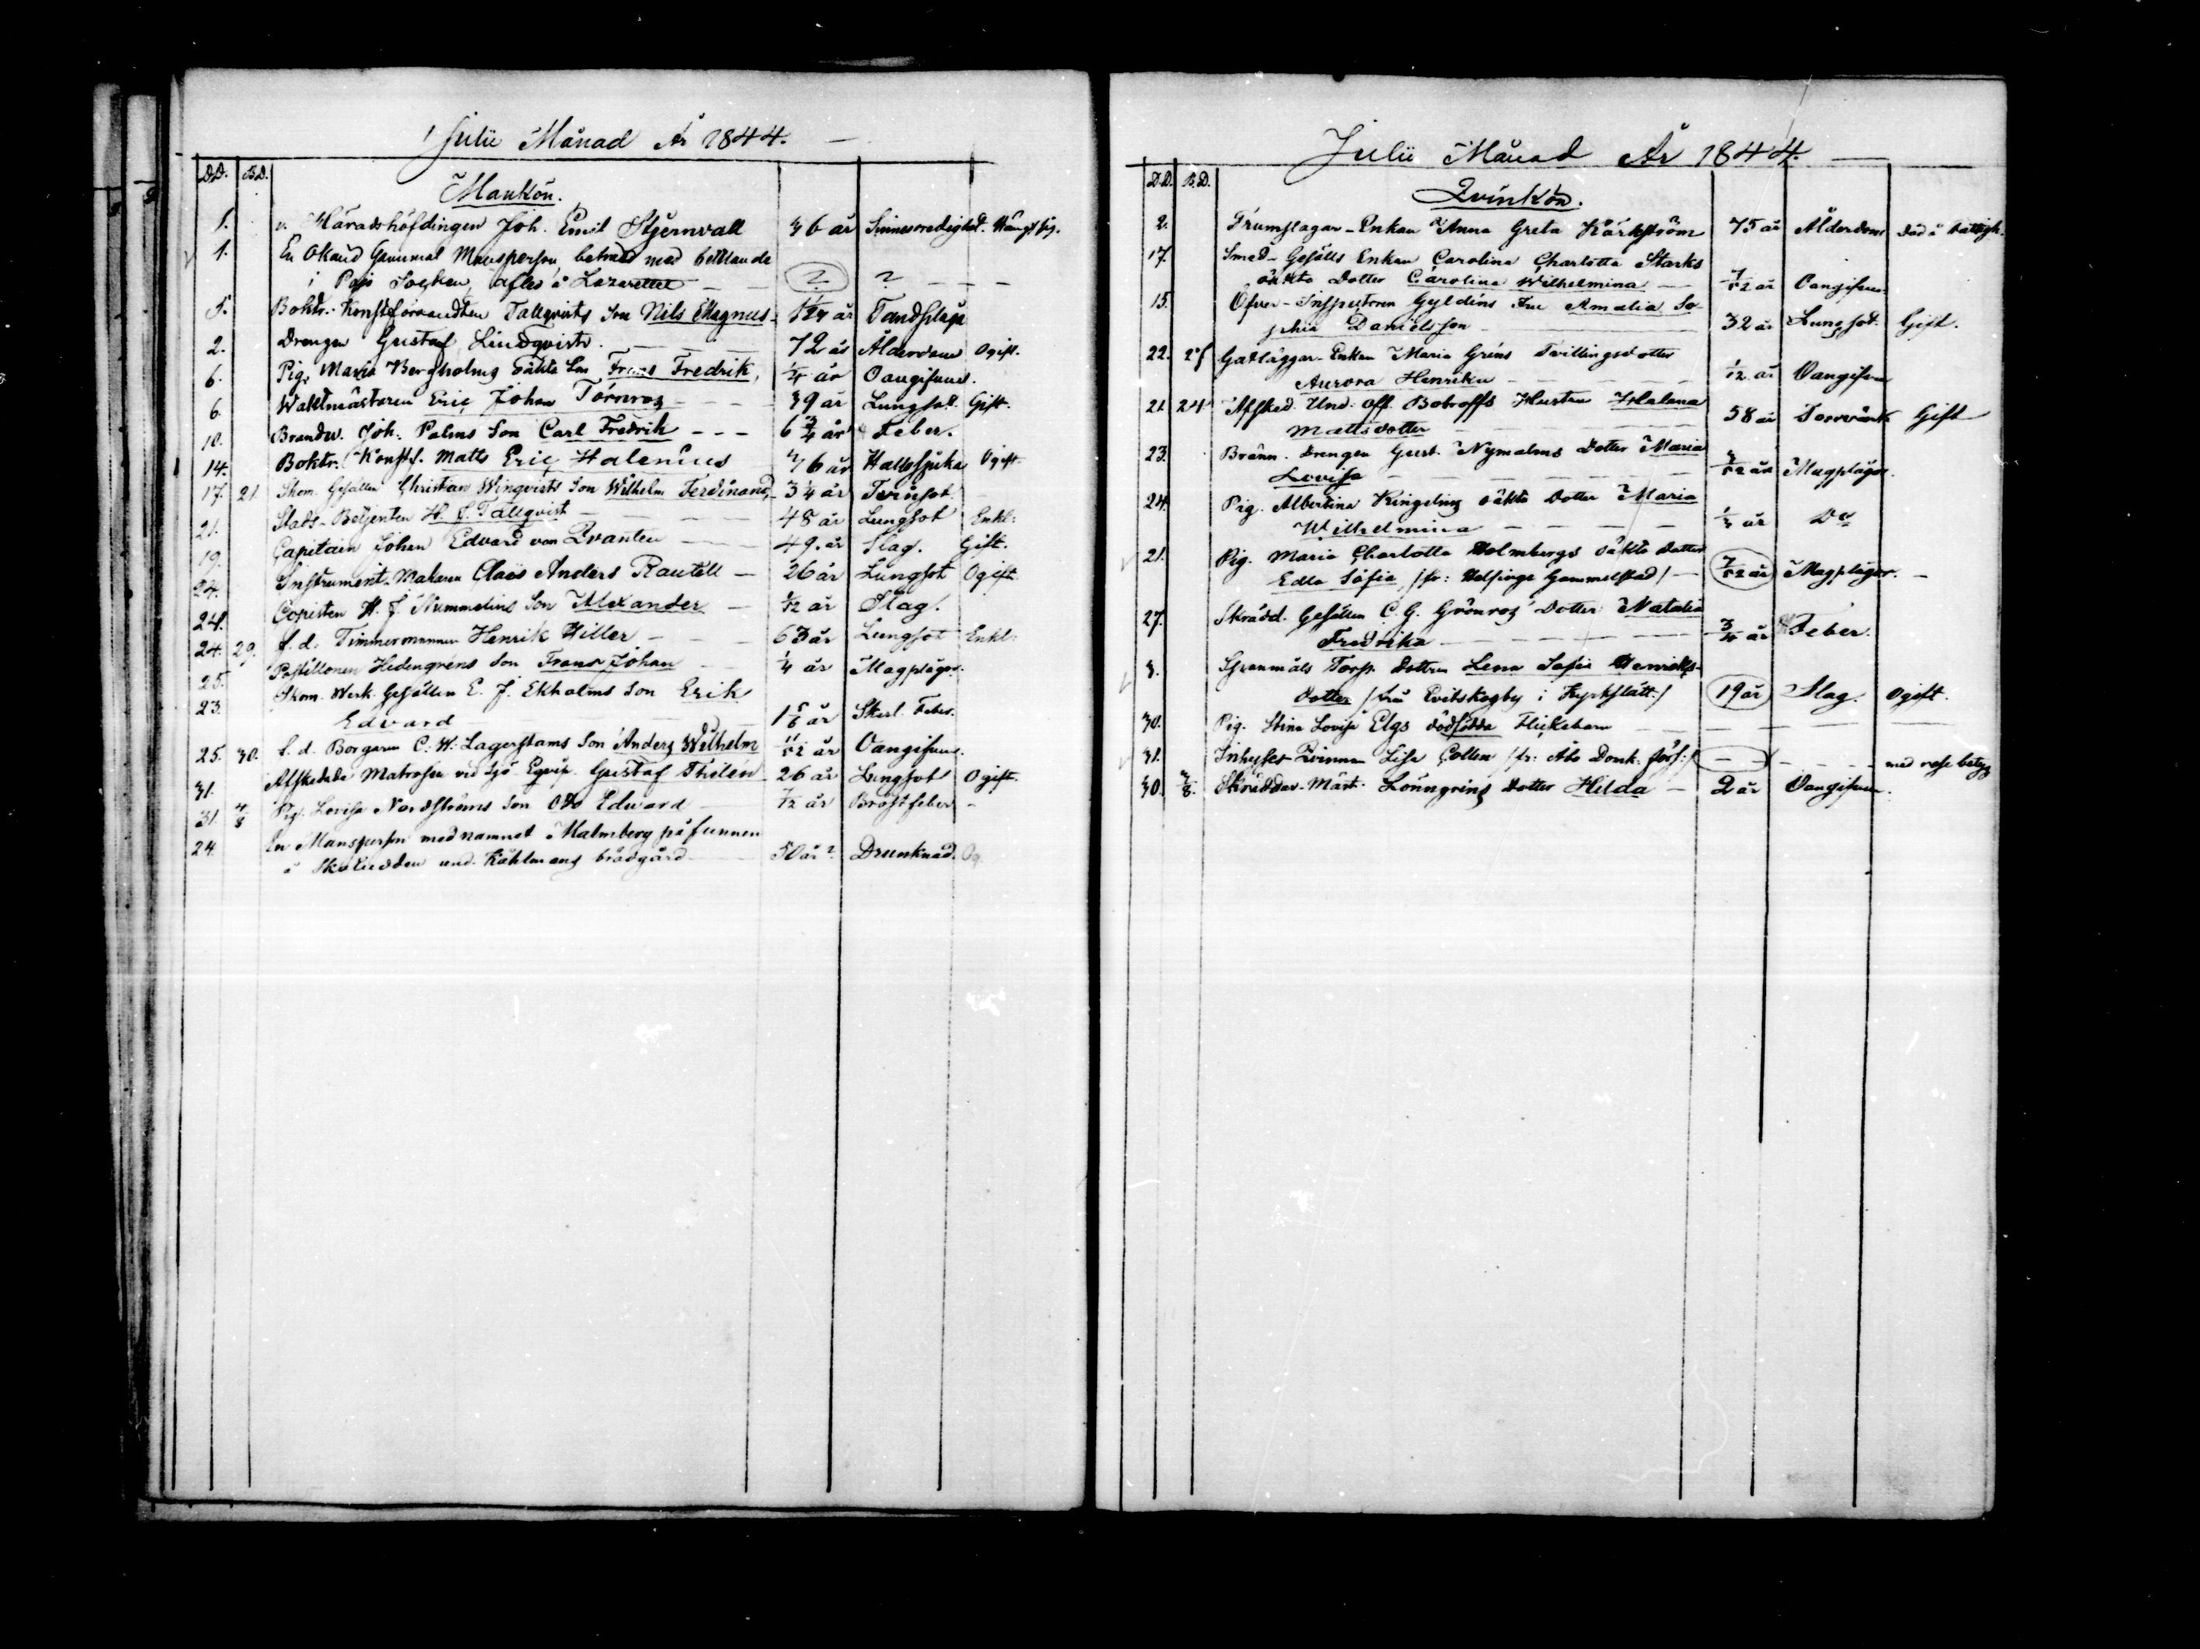 Julii Månad År 1844.
D.D. B.D.
Mankön.
1. v. Häradshöfdingen Joh. Emil Stjernvall 36 år Sinnesoredighet. Hängt sig.
1. En Okänd Gammal Mansperson beträdd med bettlande
i Pojo Socken, afled å Lazarettet — — ? ? — — —
5. Boktr. Konstförvandten Tallqvists Son Nils Magnus 1 1/4 år Tandsprick
2. Drengen Gustaf Lindqvist — — 72 år Ålderdom Ogift.
6. Pig. Maria Bergholms oäkta Son Frans Fredrik, 1/4 år Oangifven.
6. Waktmästaren Eric Johan Törnroos — — 39 år Lungsot. Gift.
10. Brandv. Joh. Palms Son Carl Fredrik — — — 6 3/4 år Feber.
14. Boktr. Konstf. Matts Eric Halenius 46 år Halssjuka Ogift
17. 21. Skom. Gesällen Christian Winqvists Son Wilhelm Ferdinand, 3 1/4 år Tvinsot.
21. Stads-Betjenten H. J. Tallqvist — — 48 år Lungsot Enkl:
19. Capitain Johan Edvard von Qvanten — — 49. år Slag. Gift.
24. Instrument-Makaren Claës Anders Rautell — 26 år Lungsot Ogift.
24. Copisten H. J. Nummelins Son Alexander — 1/12 år Slag.
24. 29. f. d. Timmermannen Henrik Hiller — — 63 år Lungsot Enkl:
25. Postillonen Hedengréns Son Frans Johan — 1/4 år Magplågor.
23. Skom. Werk. Gesällen E. J. Ekholms Son Erik
Edvard — — 1 5/6 år Skarl. Feber.
25. 30. f. d. Borgaren C. W. Lagerstams Son Anders Wilhelm 11/12 år Oangifven.
31. Afskedade Matrosen vid Sjö Eqvip. Gustaf Thilén 26 år Lungsot Ogift.
31. 4/8 Pig. Lovisa Nordströms Son Otto Edvard — 1/12 år Bröstfeber —
24. En Mansperson med namnet Malmberg påfunnen
å Skatudden und. Kählmans brädgård — 50 år? Drunknad. Og
Julii Månad År 1844. —
D.D. B.D.
Qvinkön.
2. Trumslagar-Enkan Anna Greta Kärkström 75 år Ålderdom Död å Fattigh.
17. Smed-Gesälls Enkan Carolina Charlotta Starks
oäkta Dotter Carolina Wilhelmina — 7/12 år Oangifven.
15. Öfver-Inspectoren Gyldéns Fru Amalia So-
phia Danielsson — — 32 år Lungsot. Gift.
22. 25 Gatläggar-Enkan Maria Gréns Tvillingsdotter
Aurora Henrika — — — 1/12 år Oangifven
21 24 Afsked. Und. Off. Bobroffs Hustru Helena
Mattsdotter — — — 58 år Gift
23. Bränn. Drengen Gust. Nymalms Dotter Maria
Lovisa — — — 3/12 år Magplågor.
24. Pig. Albertina Ringelins oäkta Dotter Maria
Wilhelmina — — — 1/3 år Do
21. Pig. Maria Charlotta Holmbergs oäkta Dotter
Edla Sofia /fr: Helsinge Gammelstad/ — 7/12 år Magplågor. —
27. Skrädd. Gesällen C. G. Grönroos Dotter Natalia
Fredrika — — — 3/4 år Feber.
3. Torp. Dottren Lena Sofia Henriks-
dotter /från Evitskogby i Kyrkslätt/ 19 år Slag. Ogift.
30. Pig. Stina Lovisa Elgs dödfödda Flickebarn — — —
31. Inhyses Qvinnan Lisa Collin /fr: Åbo Domk. förs:/ — — — — — med rese betyg
30. 2/8. Skräddar-Mäst. Lönngrens Dotter Hilda — 2 år Oangifven.